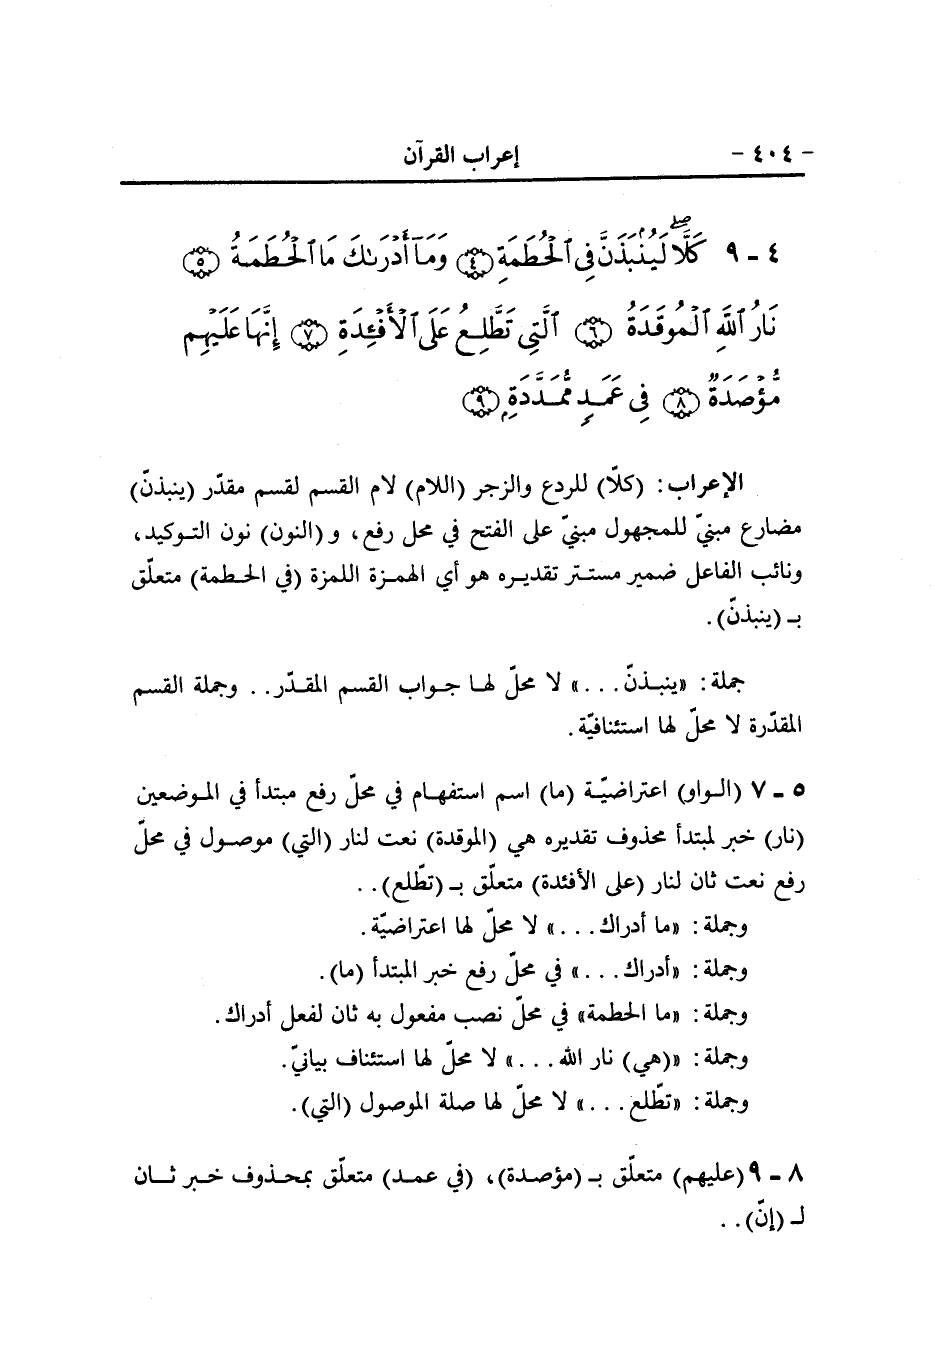 - ٤٠٤ - إعراب القرآن
٤ - ٩ كَلَّا ۖ لَيُنۢبَذَنَّ فِى ٱلْحُطَمَةِ ﴿٤﴾ وَمَآ أَدْرَىٰكَ مَا ٱلْحُطَمَةُ ﴿٥﴾
نَارُ ٱللَّهِ ٱلْمُوقَدَةُ ﴿٦﴾ ٱلَّتِى تَطَّلِعُ عَلَى ٱلْأَفْـِٔدَةِ ﴿٧﴾ إِنَّهَا عَلَيْهِم
مُّؤْصَدَةٌ ﴿٨﴾ فِى عَمَدٍ مُّمَدَّدَةٍۭ ﴿٩﴾
الإعراب : (كلّا) للردع والزجر (اللام) لام القسم لقسم مقدّر (ينبذنّ)
مضارع مبنيّ للمجهول مبنيّ على الفتح في محل رفع ، و (النون) نون التوكيد ،
ونائب الفاعل ضمير مستتر تقديره هو أي الهمزة اللمزة (في الحطمة) متعلّق
بـ (ينبذنّ) .
جملة : «ينبذنّ . . .» لا محلّ لها جواب القسم المقدّر . . وجملة القسم
المقدّرة لا محلّ لها استئنافيّة .
٥ - ٧ (الواو) اعتراضيّة (ما) اسم استفهام في محلّ رفع مبتدأ في الموضعين
(نار) خبر لمبتدأ محذوف تقديره هي (الموقدة) نعت لنار (التي) موصول في محلّ
رفع نعت ثان لنار (على الأفئدة) متعلّق بـ (تطّلع) . .
وجملة : «ما أدراك . . .» لا محلّ لها اعتراضيّة .
وجملة : «أدراك . . .» في محلّ رفع خبر المبتدأ (ما) .
وجملة : «ما الحطمة» في محلّ نصب مفعول به ثان لفعل أدراك .
وجملة : «(هي) نار الله . . .» لا محلّ لها استئناف بيانيّ .
وجملة : «تطّلع . . .» لا محلّ لها صلة الموصول (التي) .
٨ - ٩ (عليهم) متعلّق بـ (مؤصدة) ، (في عمد) متعلّق بمحذوف خبر ثان
لـ (إنّ) . .